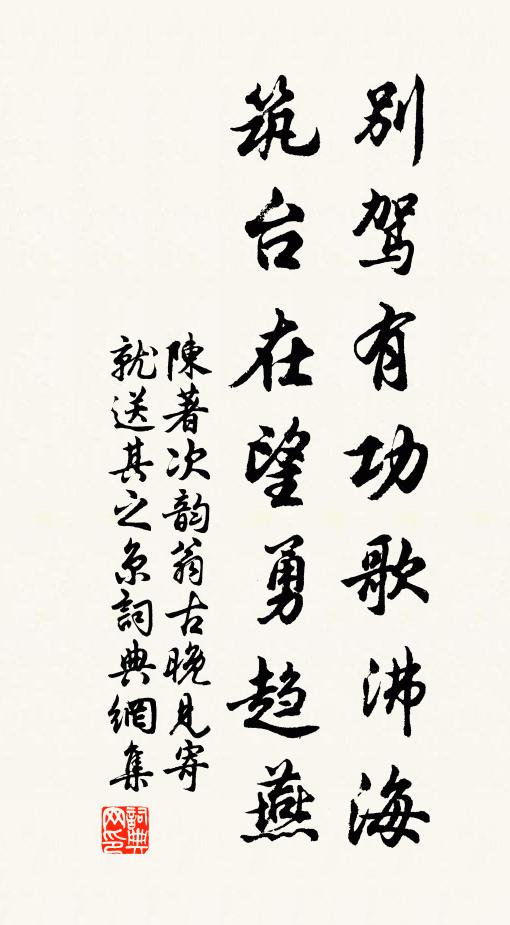 别驾有功歌沸海
筑台在望勇趋燕
陳著次韵翁古晚见寄
就送其之京詞典網集
詞典網印